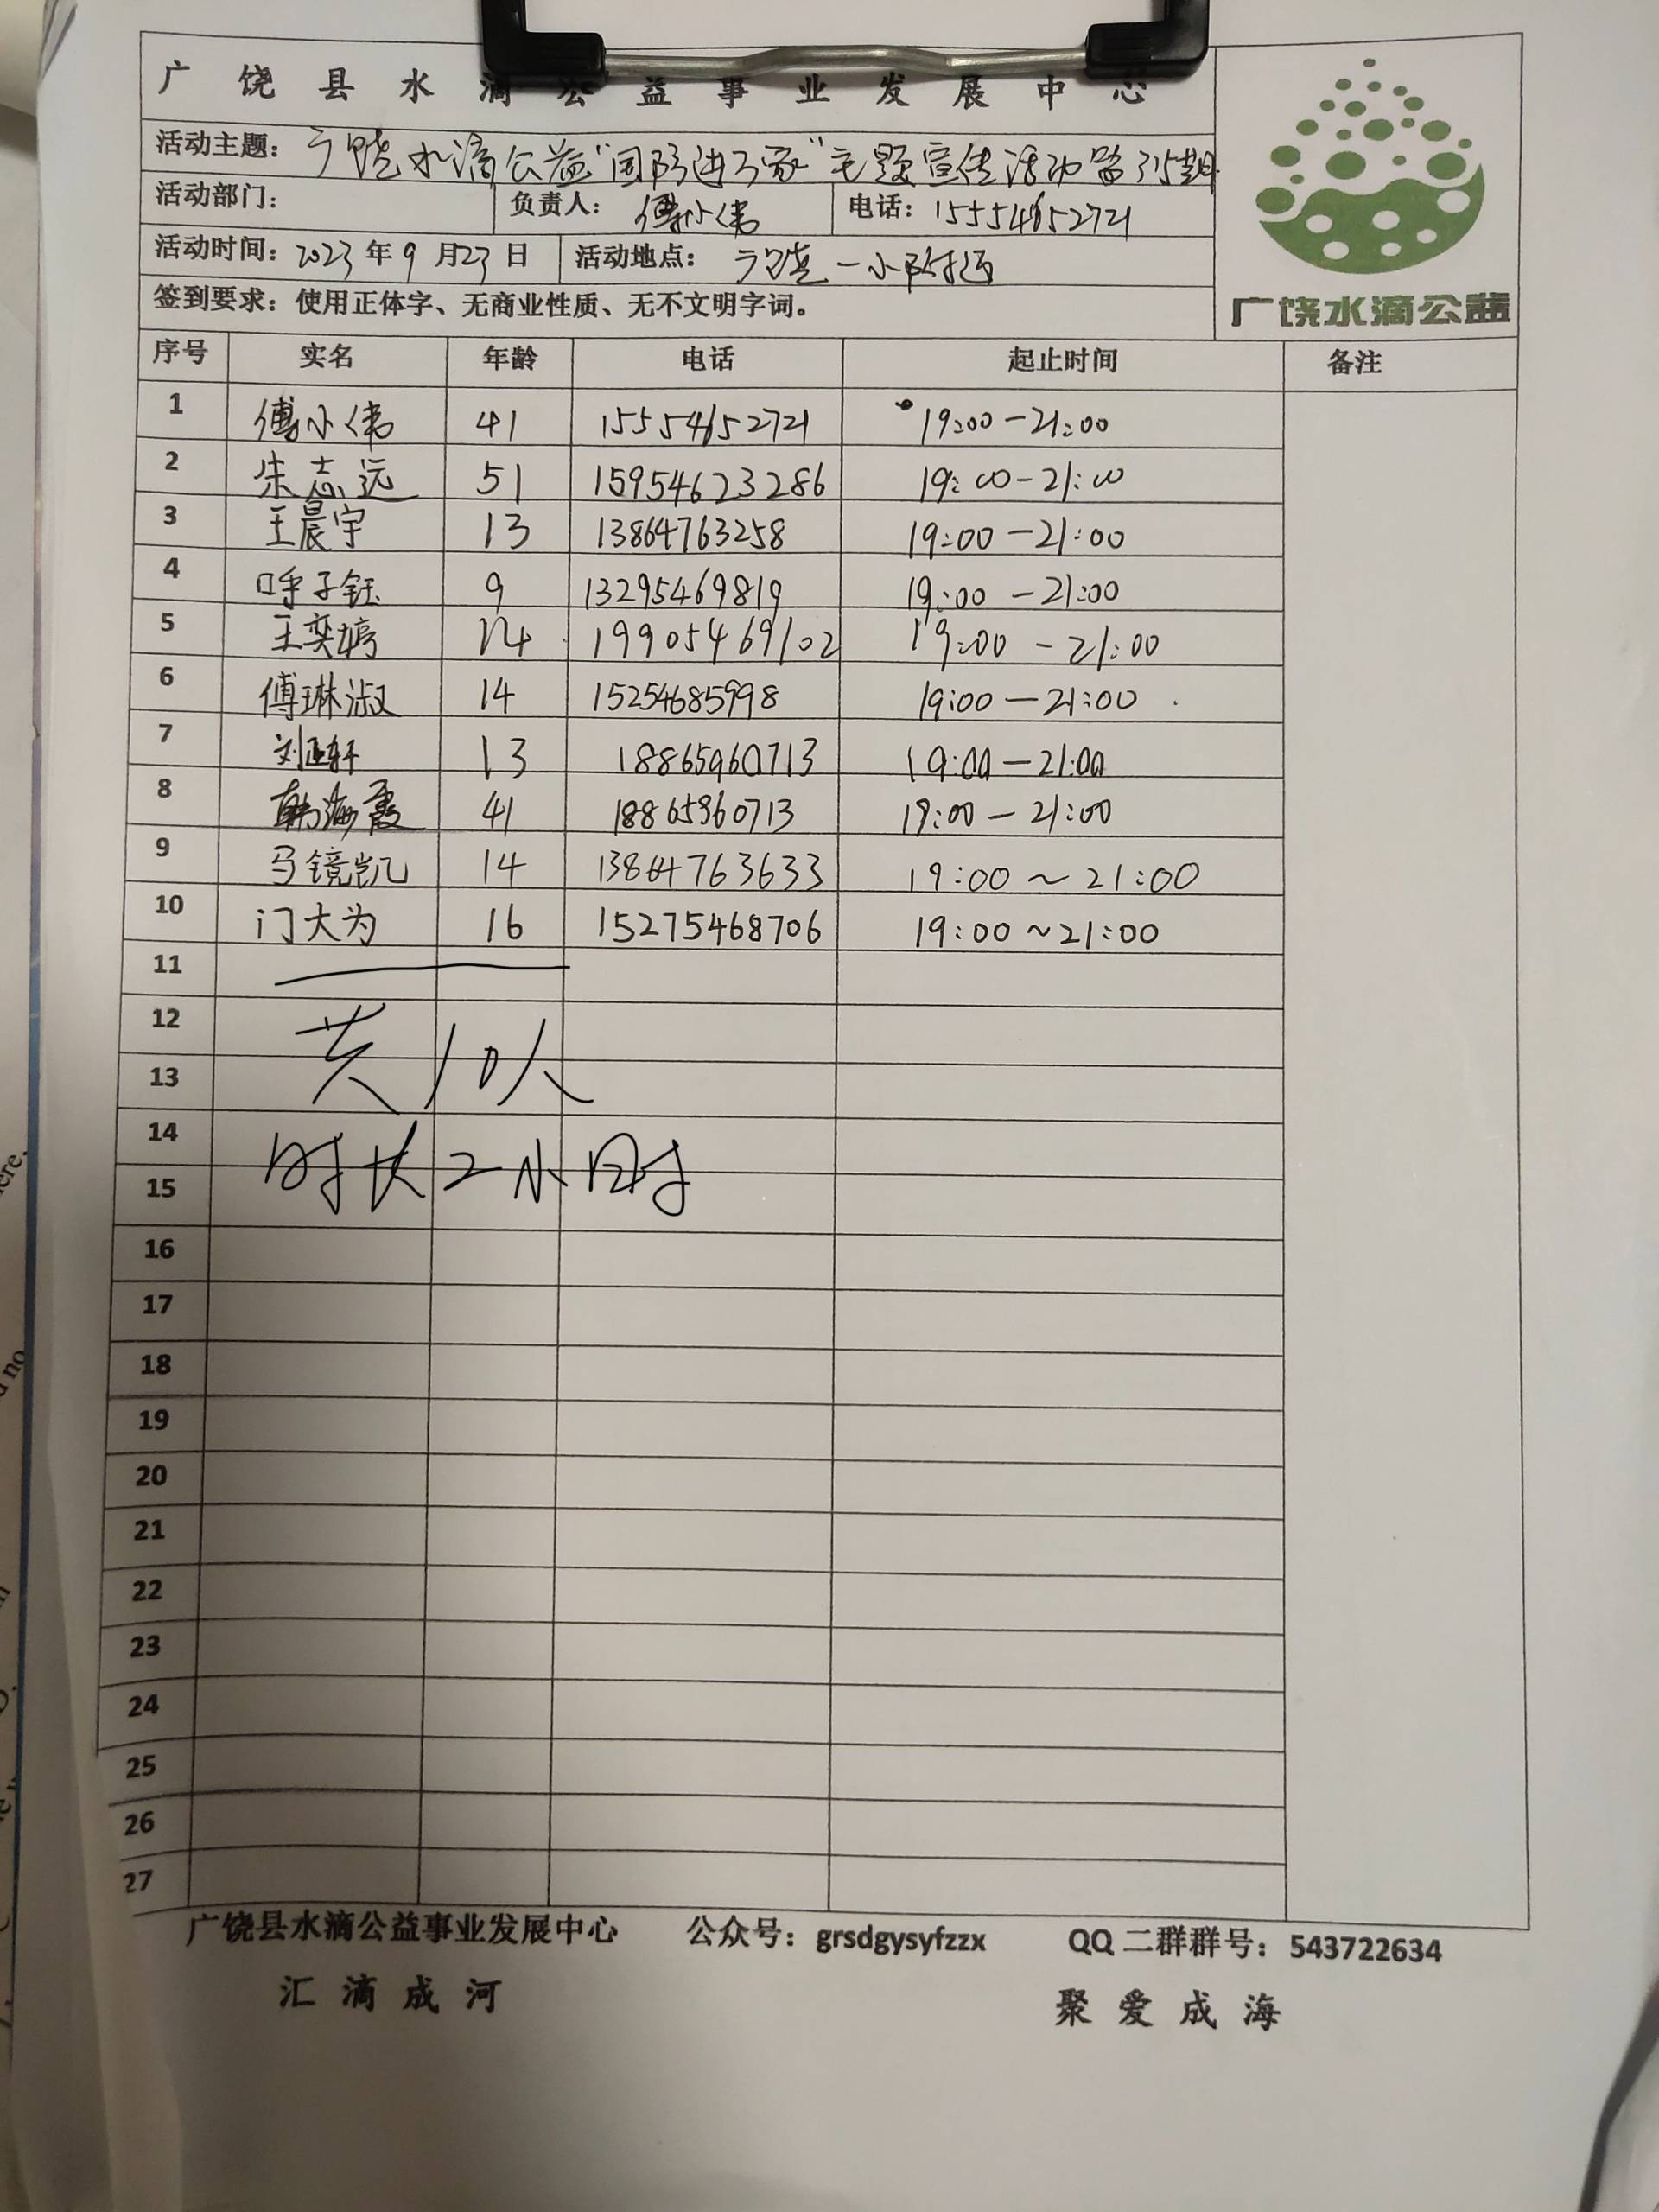 广饶县水滴公益事业发展中心
活动主题：广饶水滴公益“国防进万家”主题宣传活动第315期
活动部门： 负责人：傅小伟 电话：15554652721
活动时间：2023年9月23日 活动地点：广饶一小附近
签到要求：使用正体字、无商业性质、无不文明字词。
广饶水滴公益
序号 实名 年龄 电话 起止时间 备注
1 傅小伟 41 15554652721 19:00-21:00
2 朱志远 51 15954623286 19:00-21:00
3 王晨宇 13 13864763258 19:00-21:00
4 呼子钰 9 13295469819 19:00-21:00
5 王奕婷 14 19905469102 19:00-21:00
6 傅琳淑 14 15254685998 19:00-21:00
7 刘 轩 13 18865960713 19:00-21:00
8 韩海霞 41 18865960713 19:00-21:00
9 马镜凯 14 13864763633 19:00~21:00
10 门大为 16 15275468706 19:00~21:00
11
12
共10人
13
14
时长2小时
15
16
17
18
19
20
21
22
23
24
25
26
27
广饶县水滴公益事业发展中心 公众号：grsdgysyfzzx QQ二群群号：543722634
汇滴成河 聚爱成海